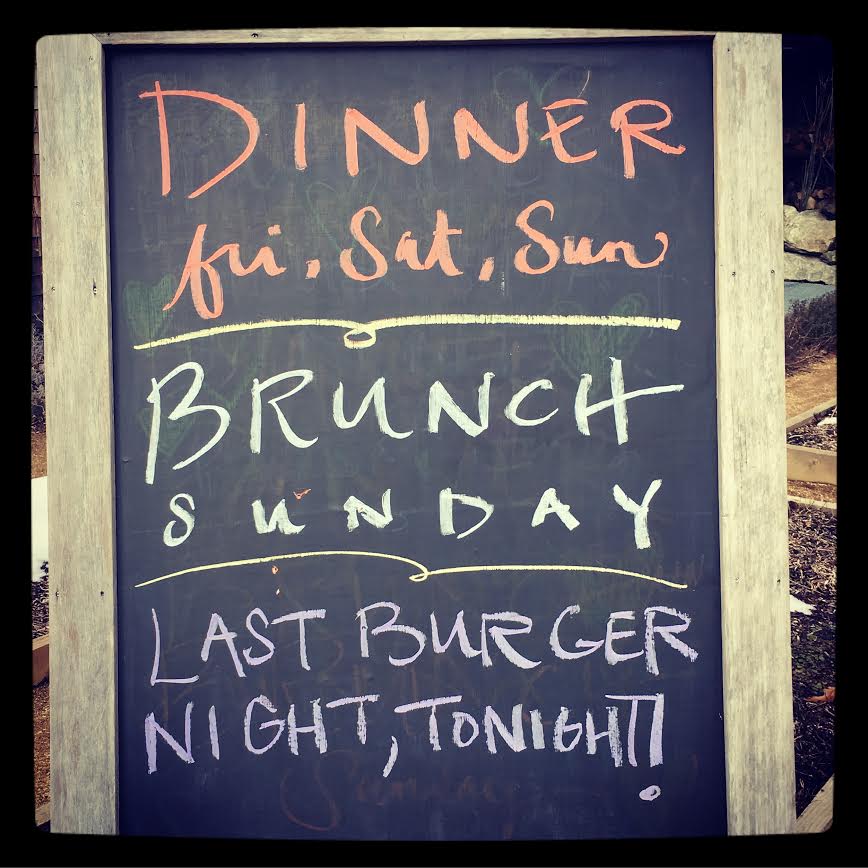 DINNER
fri, Sat, Sun
BRUNCH
SUNDAY
LAST BURGER
NIGHT, TONIGHT!